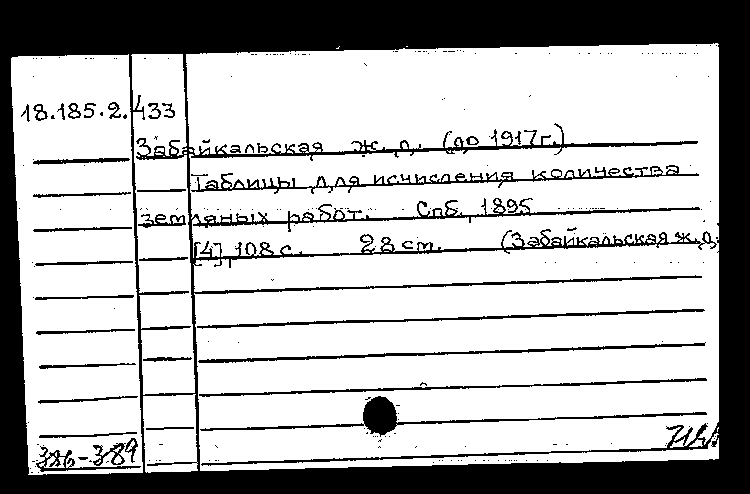 18.185.2.433
Забайкальская ж. д. (до 1917г.)
Таблицы для исчисления количества
земляных работ. Спб, 1895
[4], 108 с. 28 cm. (Забайкальская ж.д.)
386-389